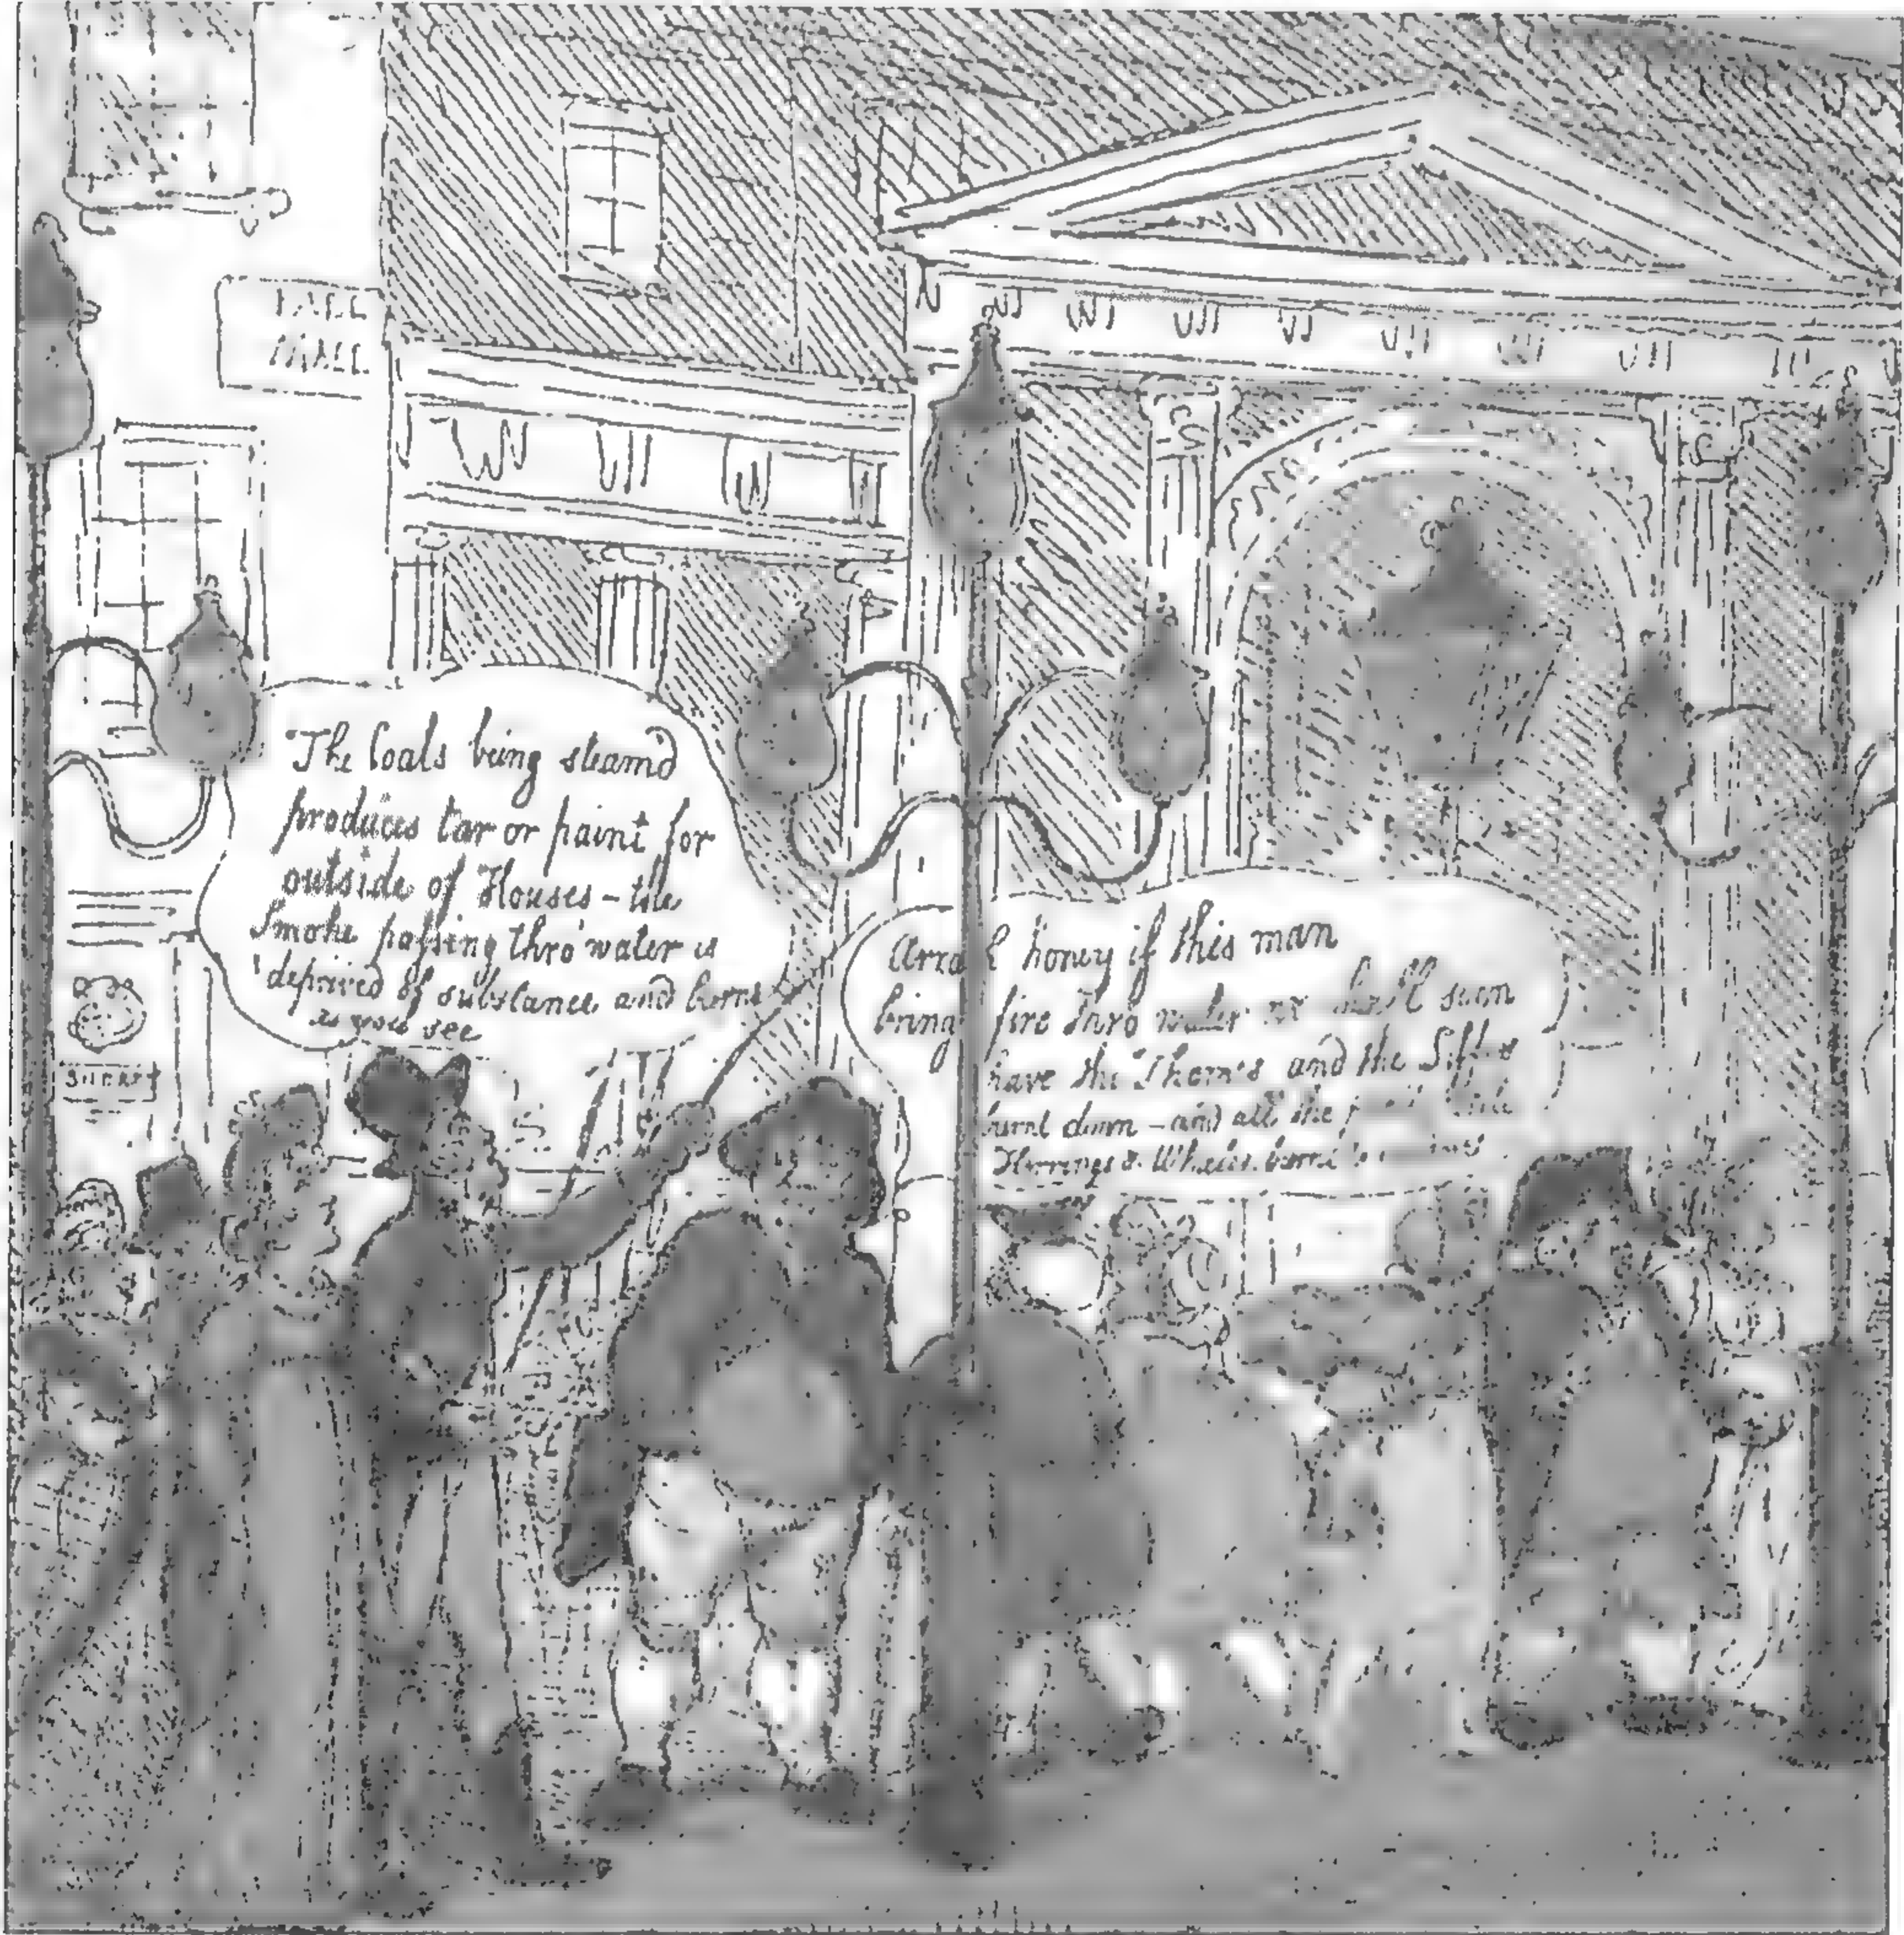 PALL
MALL
The Coals being steamd
produces tar or paint for
outside of Houses - the
Smoke passing thro' water is
deprived of substance and burns
as you see
Arra honey if this man
bring fire thro water we shall soon
have the Thames and the
burnt down - and all the
Herrings & Whales burnt